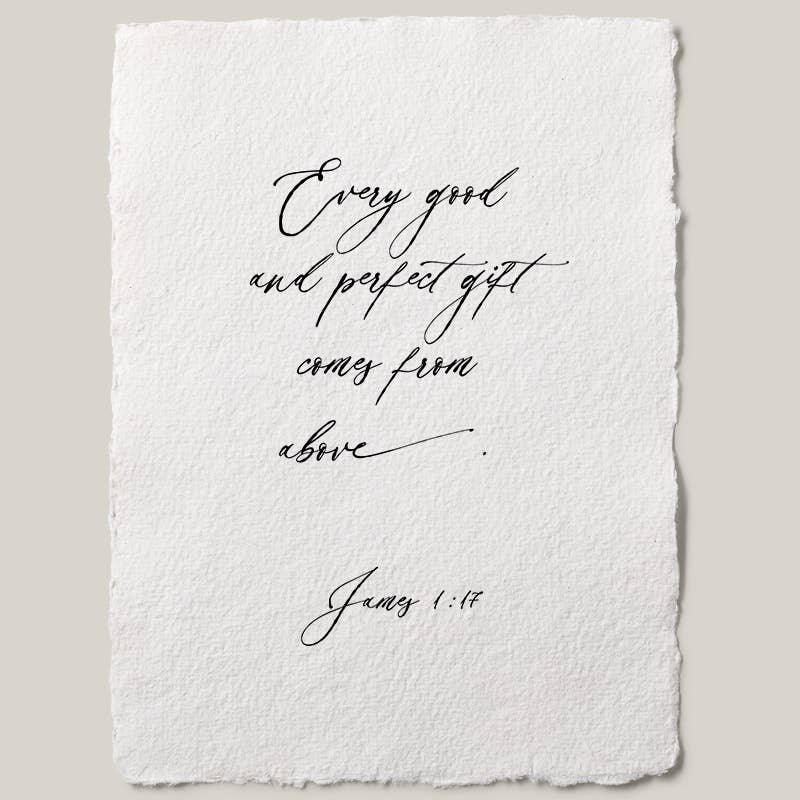 Every good
and perfect gift
comes from
above .
James 1:17